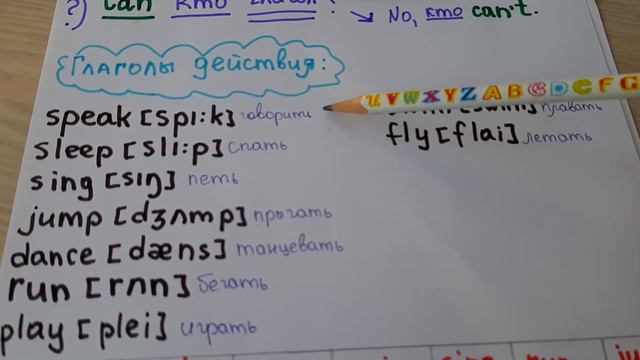 ?) Can кто глагол ?
No, кто can't.
Глаголы действия:
speak [spı:k] говорить
sleep [slı:p] спать
sing [sıŋ] петь
jump [dʒʌmp] прыгать
dance [dæns] танцевать
run [rʌn] бегать
play [plei] играть
плавать
fly [flai] летать
U V W X Y Z A B C D E F G